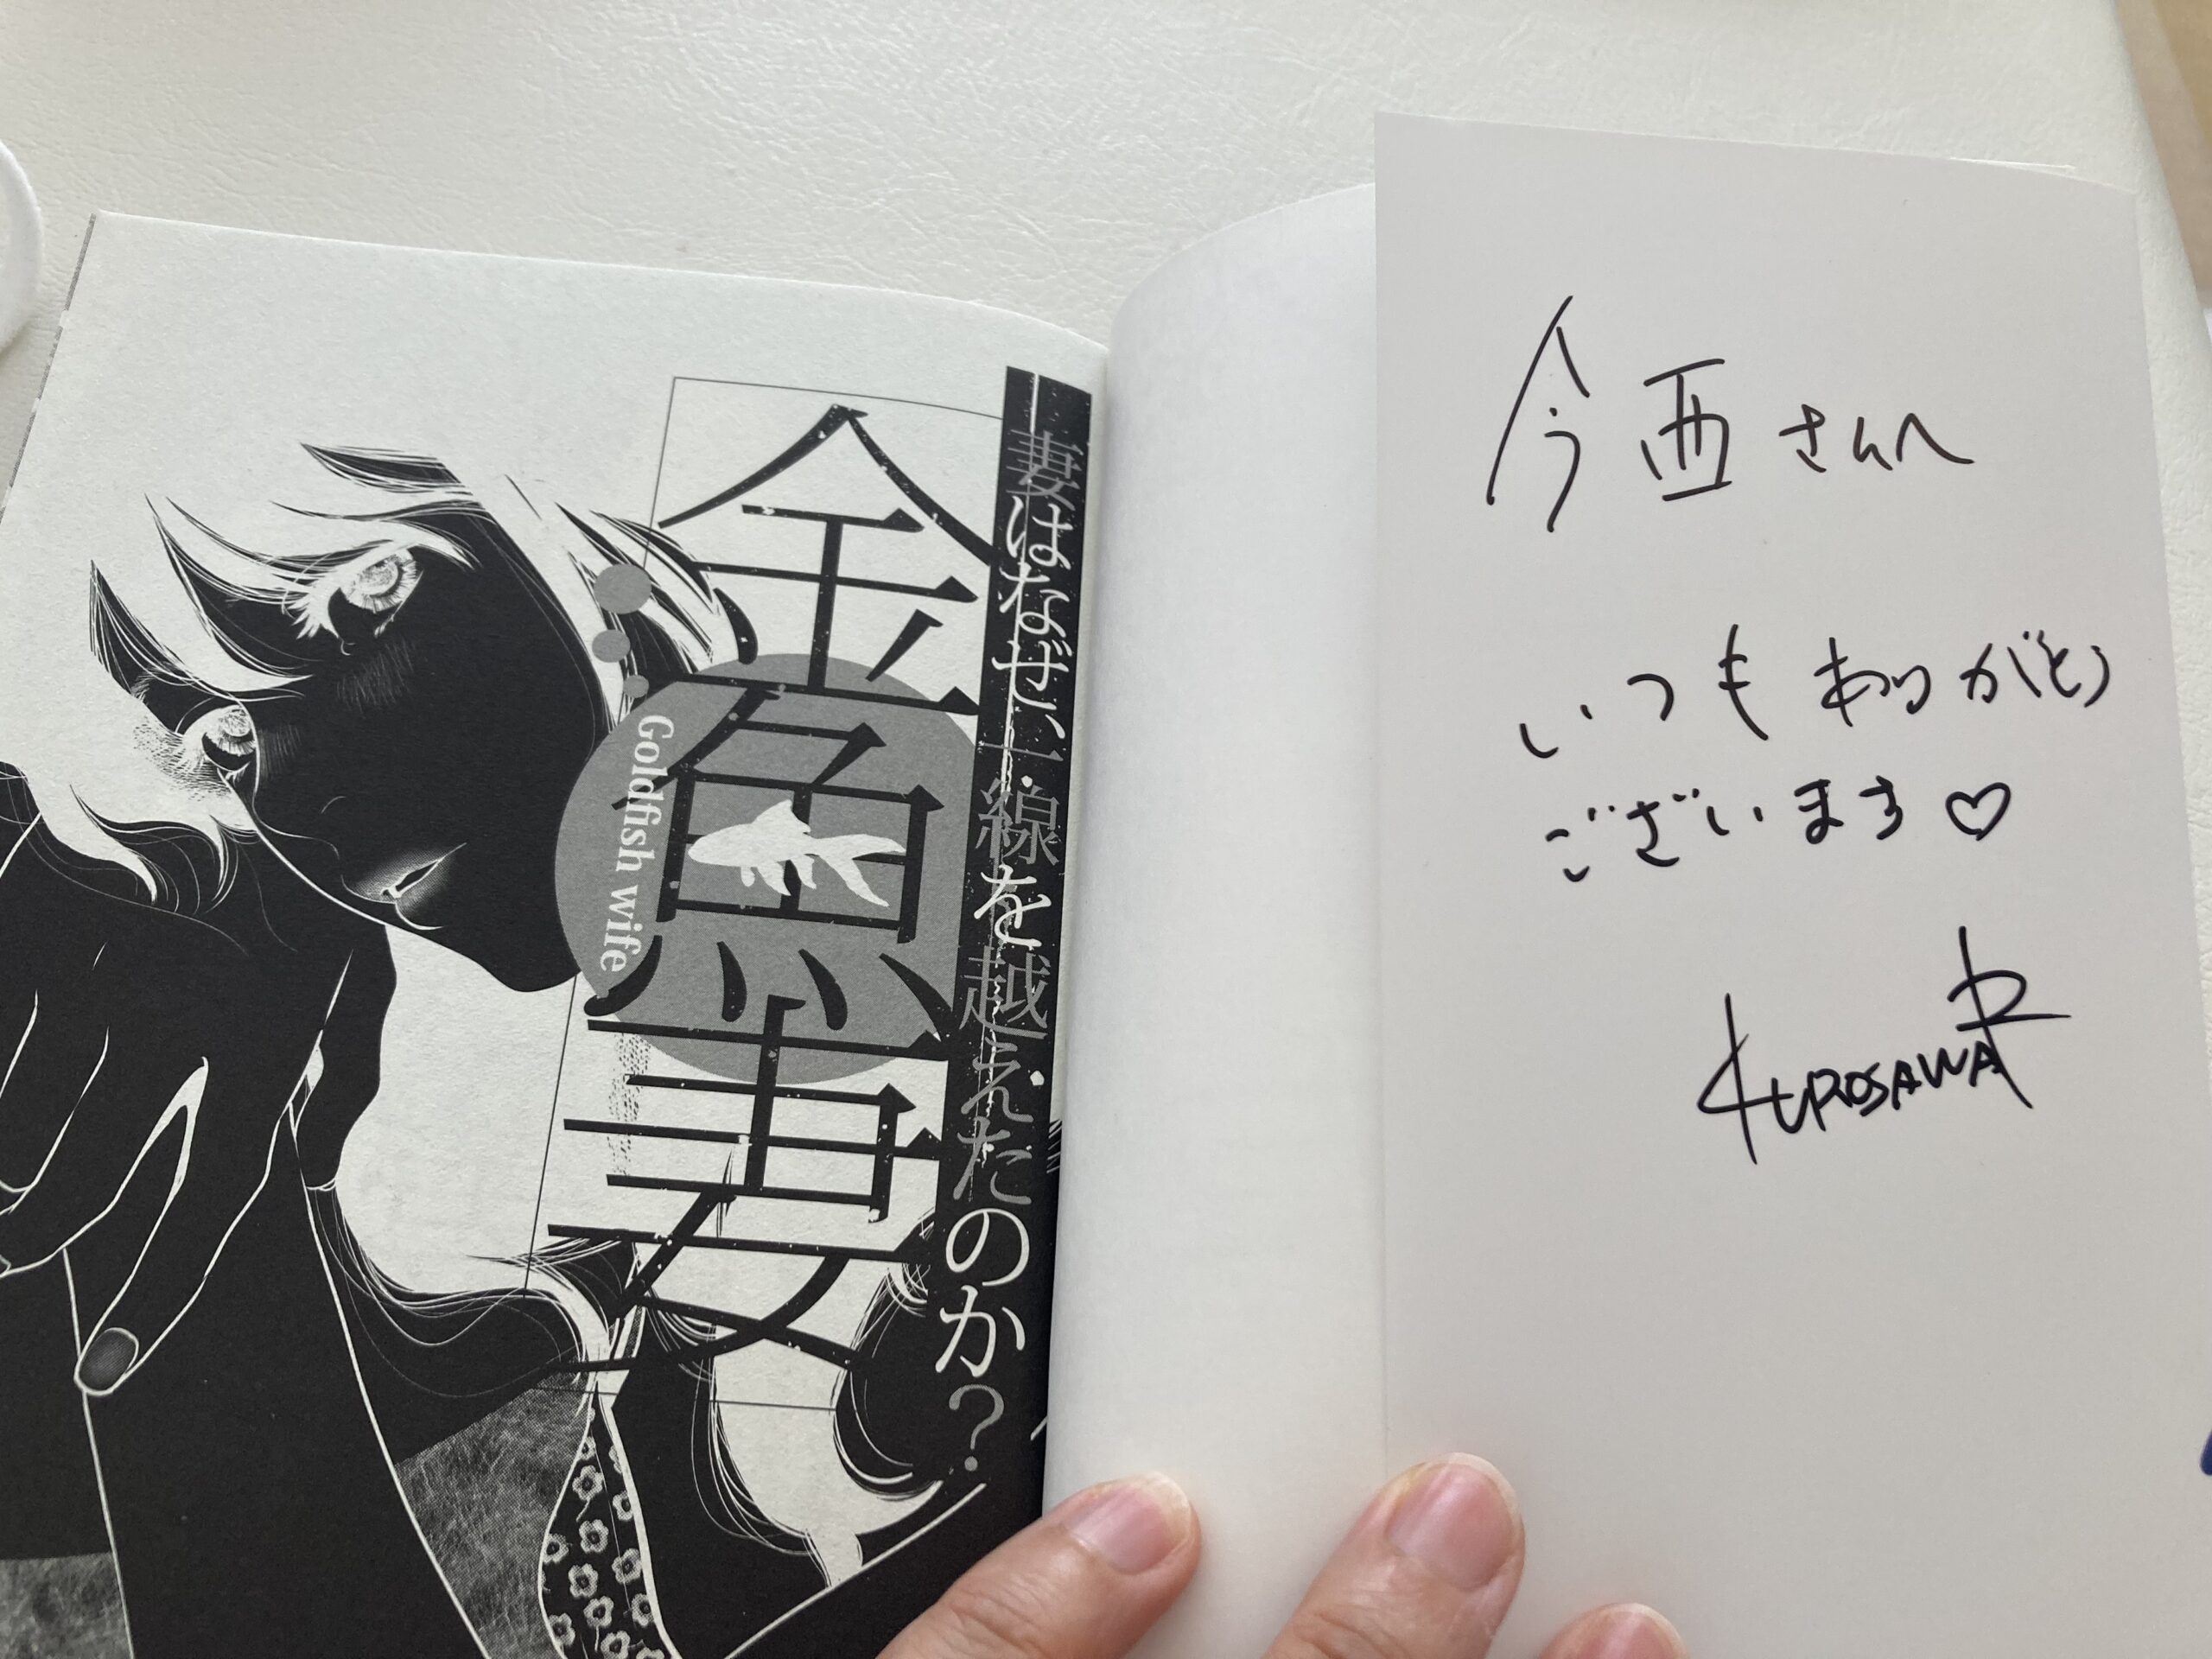 今西さんへ
いつもありがとう
ございます♡
KUROSAWA R
妻はなぜ、一線を越えたのか?
金魚妻
Goldfish wife